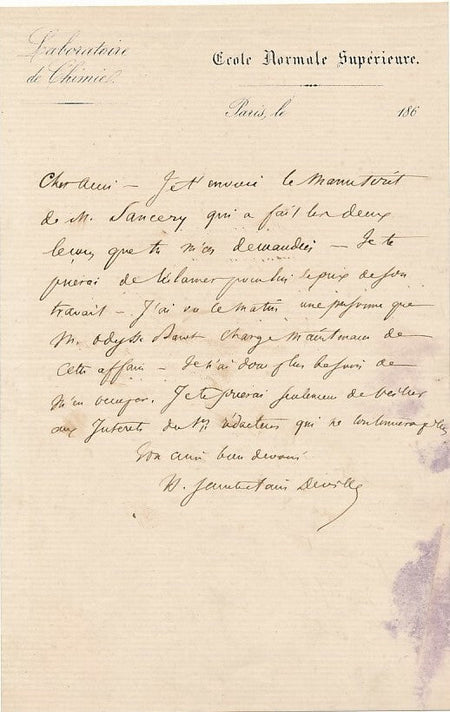 Laboratoire
de Chimie.
Ecole Normale Supérieure.
Paris, le 186
Cher ami — Je t'envoie le manuscrit
de M. Sancery qui a fait les deux
leçons que tu m'as demandées — Je te
prierai de réclamer pour lui le prix de son
travail — J'ai vu ce matin une personne que
M. Odysse Barot charge maintenant de
cette affaire — Je n'ai donc plus besoin de
m'en occuper. Je te prierai seulement de veiller
aux intérêts du rédacteur qui ne
Ton ami bien dévoué
H. Sainte Claire Deville